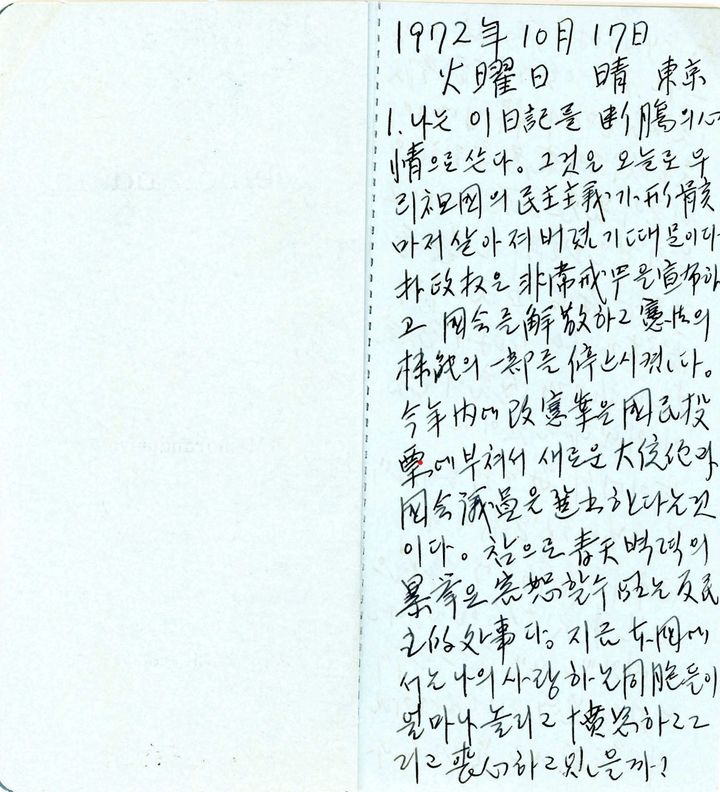 1972年 10月 17日
火曜日 晴 東京
1. 나는 이 日記를 断腸의 心
情으로 쓴다. 그것은 오늘로 우
리 祖國의 民主主義가 形骸
마저 살아져 버렸기 때문이다
朴政权은 非常戒罒을 宣布하
고 国会를 解散하고 憲法의
機能의 一部를 停止시켰다.
今年內에 改憲案을 國民投
票에 부쳐서 새로운 大統領과
國会議員을 選出한다는 것
이다. 참으로 靑天벽력의
暴擧요 容恕할 수 없는 反民
主的 処事다. 지금 本国에
서는 나의 사랑하는 同胞들이
얼마나 놀라고 憤怒하고 그
리고 喪心하고 있을까?